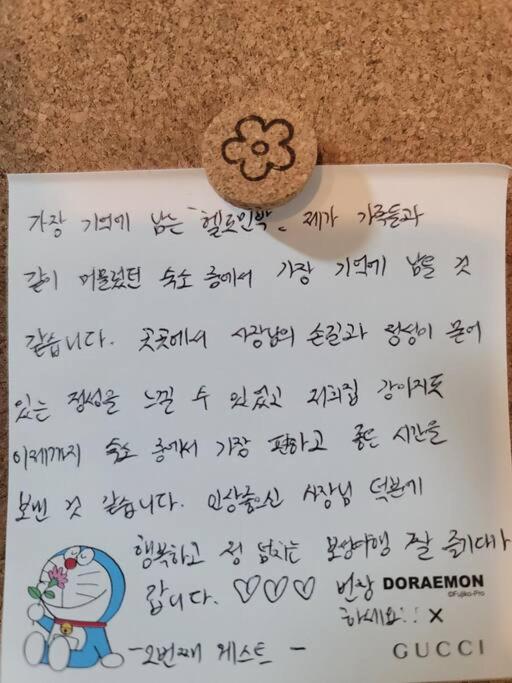 가장 기억에 남는 "헬로민박" 제가 가족들과
같이 머물렀던 숙소 중에서 가장 기억에 남을 것
같습니다. 곳곳에서 사장님의 손길과 정성이 묻어
있는 정성을 느낄 수 있었고 저희집 강아지도
이제까지 숙소 중에서 가장 편하고 좋은 시간을
보낸 것 같습니다. 인상좋으신 사장님 덕분에
행복하고 정 넘치는 보성여행 잘 즐기다가
갑니다. ♡♡♡ 번창
하세요!!
-2번째 게스트-
DORAEMON
©Fujiko-Pro
×
GUCCI